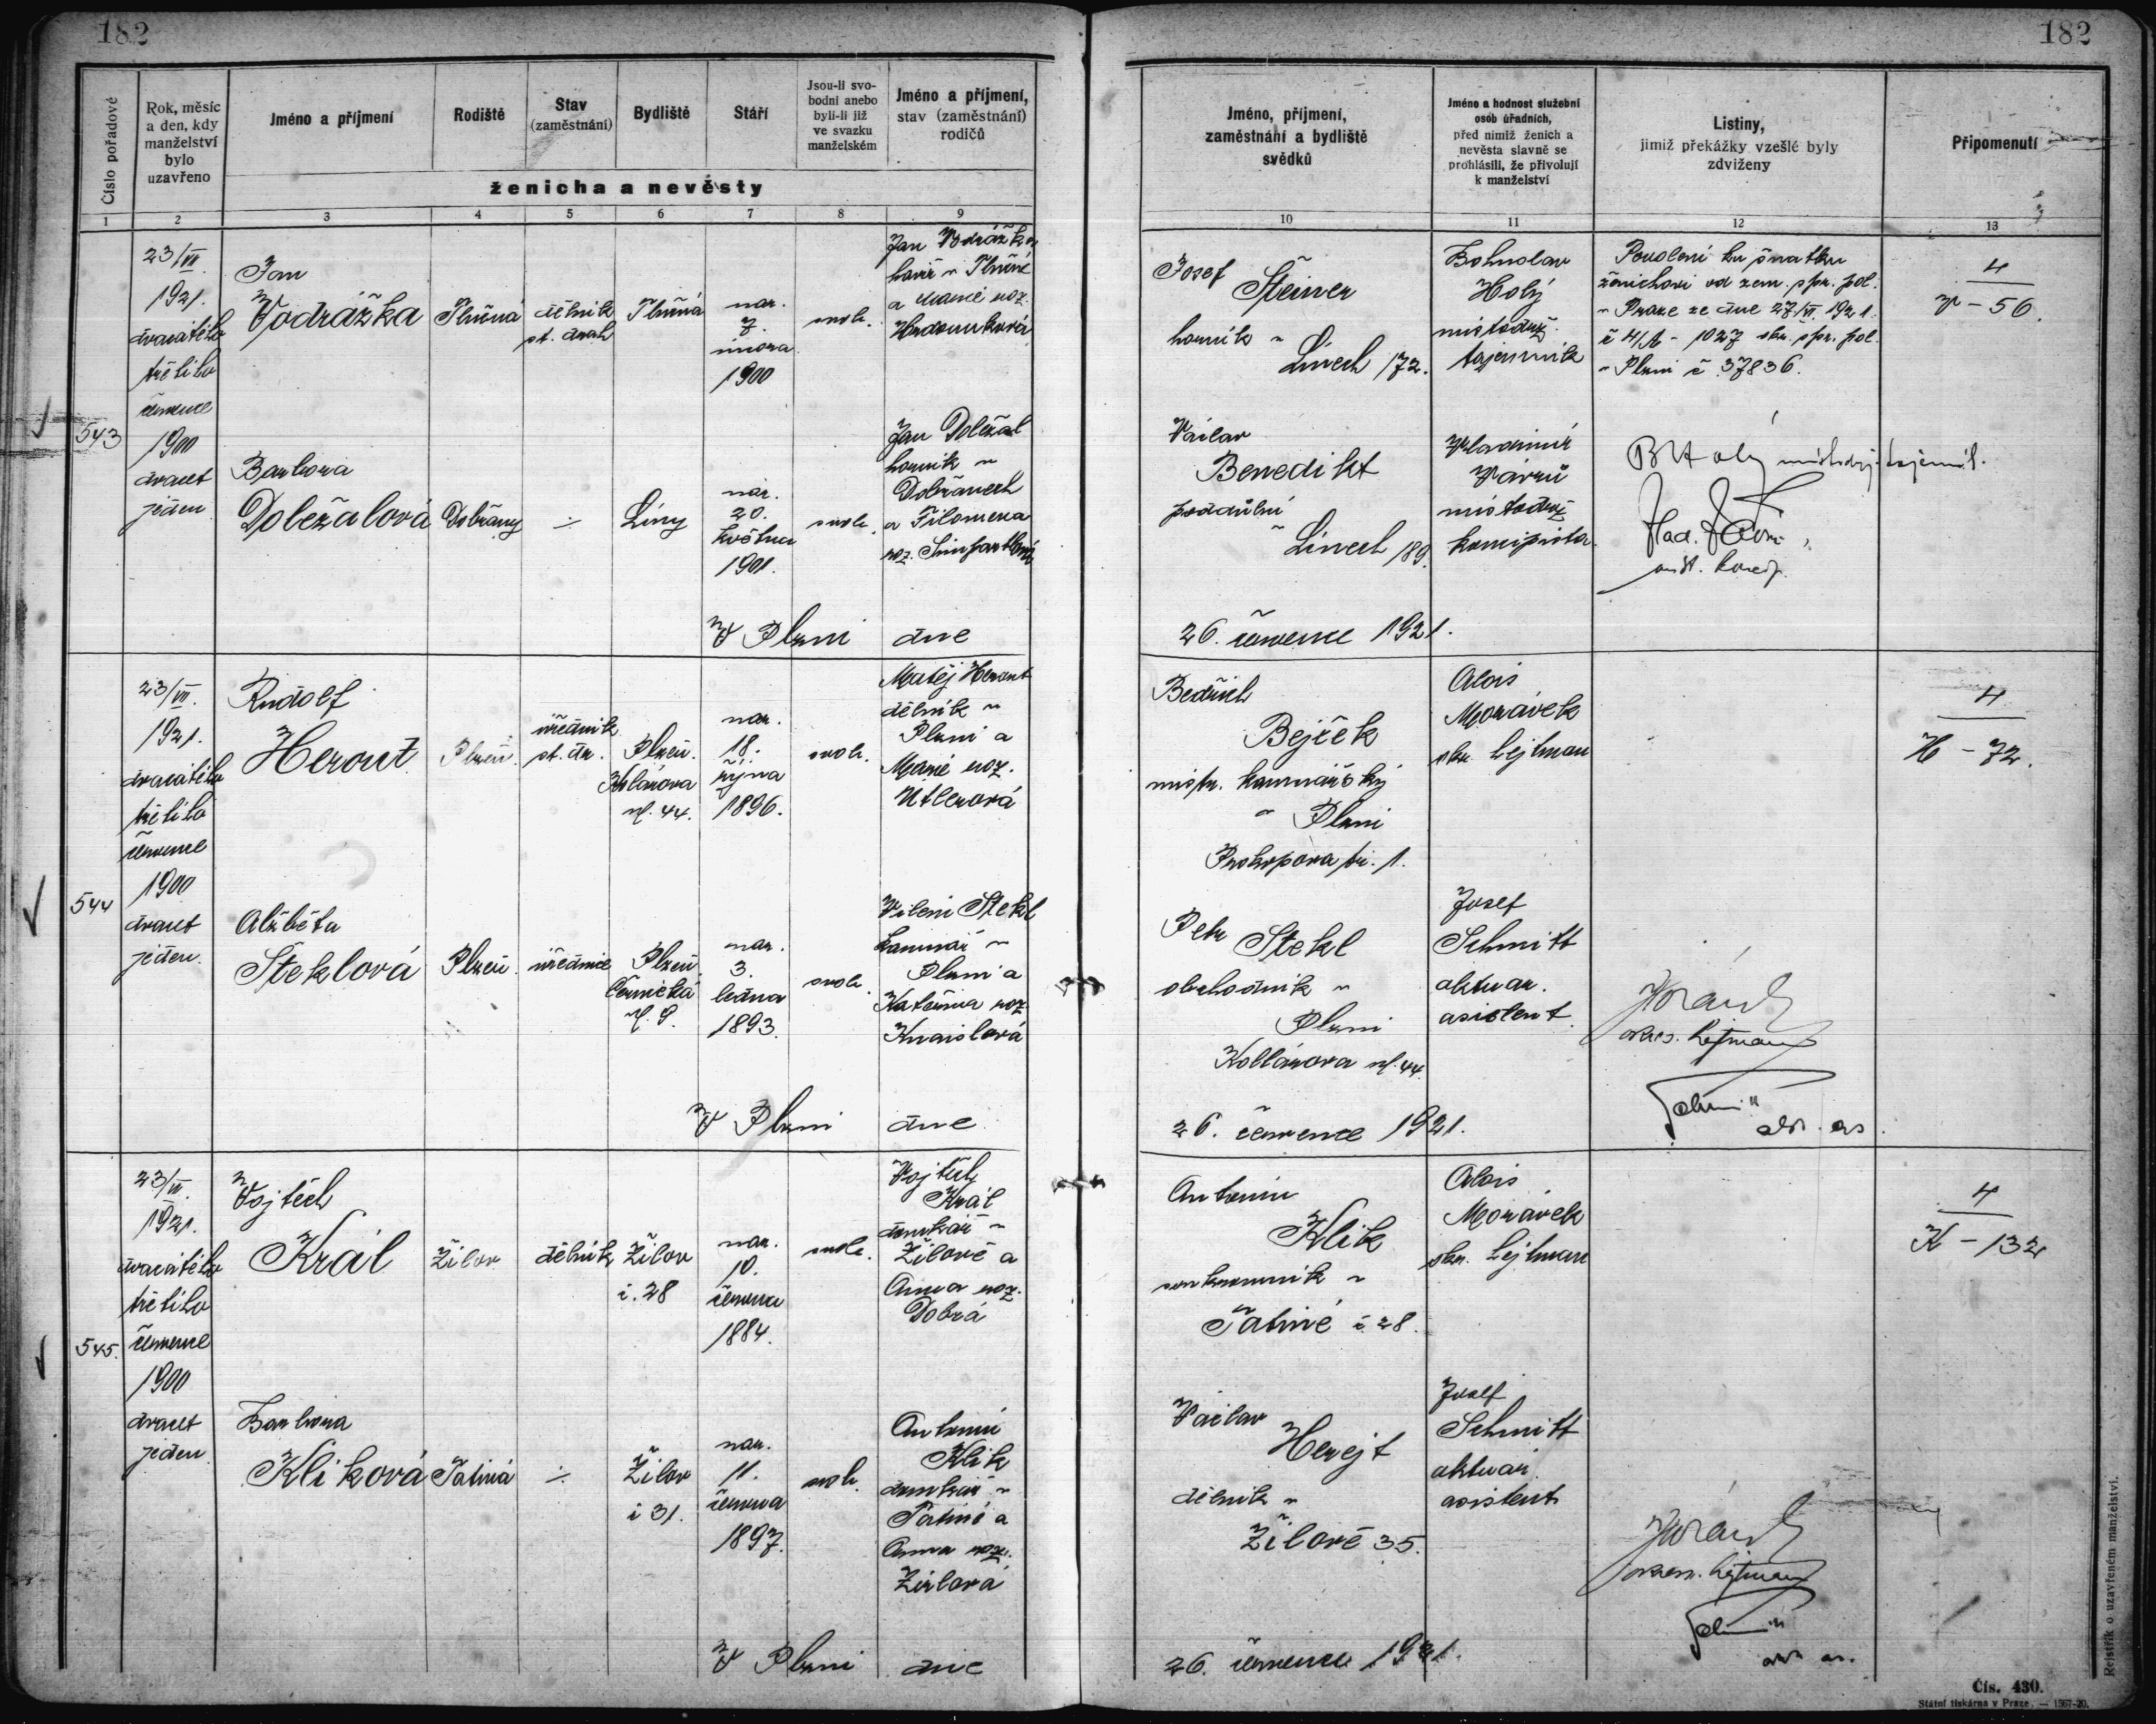 182
182
Číslo pořadové
Rok, měsíc
a den, kdy
manželství
bylo
uzavřeno
Jméno a příjmení
Rodiště
Stav
(zaměstnání)
Bydliště
Stáří
Jsou-li svo-
bodni anebo
byli-li již
ve svazku
manželském
Jméno a příjmení,
stav (zaměstnání)
rodičů
ženicha a nevěsty
1 2 3 4 5 6 7 8 9
Jméno, příjmení,
zaměstnání a bydliště
svědků
Jméno a hodnost služební
osob úřadních,
před nimiž ženich a
nevěsta slavně se
prohlásili, že přivolují
k manželství
Listiny,
jimiž překážky vzešlé byly
zdviženy
Připomenutí
10 11 12 13
543
23/VII
1921.
dvacátého
třetího
července
1900
dvacet
jeden
Jan
Vodrážka
Tlučná
dělník
st. drah
Tlučná
nar.
7.
února
1900
svob.
Jan Vodrážka
havíř v Tlučné
a Marie roz.
Barbora
Doležalová
Dobřany
÷
Líny
nar.
20.
května
1901.
svob.
Jan Doležal
horník v
Dobřanech
a Filomena
roz.
V Plzni dne
Josef
Steiner
horník v
Línech 172.
Bohuslav
Holý
místodrž.
tajemník
Povolení ku sňatku
ženichovi od zem. spr. pol.
v Praze ze dne 27/VI. 1921.
č 4/A - 1027 okr. spr. pol.
v Plzni č 37836.
4
V - 56.
Václav
Benedikt
poddůlní
v Línech 189.
Vladimír
Vávrů
místodrž.
koncipista.
B Holý místodrž. tajemník.
26. července 1921.
544
23/VII.
1921.
dvacátého
třetího
července
1900
dvacet
jeden.
Rudolf
Herout
Plzeň.
úředník
st. dr.
Plzeň.
Kollárova
ul. 44.
nar.
18.
října
1896.
svob.
Matěj Herout
dělník v
Plzni a
Marie roz.
Utlerová
Alžběta
Steklová
Plzeň.
úřednice
Plzeň
ul. 9.
nar.
3.
ledna
1893.
svob.
Vilém Stekl
v
Plzni a
Kateřina roz.
Knaislová
V Plzni dne
Bedřich
Bejček
mistr. kominářský
v Plzni
Prokopova tř. 1.
Alois
Morávek
okr. hejtman
4
H - 72.
Petr
Stekl
obchodník v
Plzni
Kollárova ul. 44.
Josef
Schmitt
aktuár.
asistent.
okres. hejtman
26. července 1921.
545.
23/VII.
1921.
dvacátého
třetího
července
1900
dvacet
jeden
Vojtěch
Král
Žilov
dělník
Žilov
č. 28
nar.
10.
června
1884.
svob.
Vojtěch
Král
domkář v
Žilově a
Anna roz.
Dobrá
Barbora
Klíková
Tatiná
÷
Žilov
č 31.
nar.
11.
června
1897.
svob.
Antonín
Klik
domkář v
Tatiné a
Anna roz.
V Plzni dne
Antonín
Klik
soukromník v
Tatiné č 28.
Alois
Morávek
okr. hejtman
4
K - 132
Václav
Herejt
dělník v
Žilově 35.
Josef
Schmitt
aktuár.
asistent
hejtman
26. července 1921.
Rejstřík o uzavřeném manželství.
Čís. 430.
Státní tiskárna v Praze. — 1567-20.